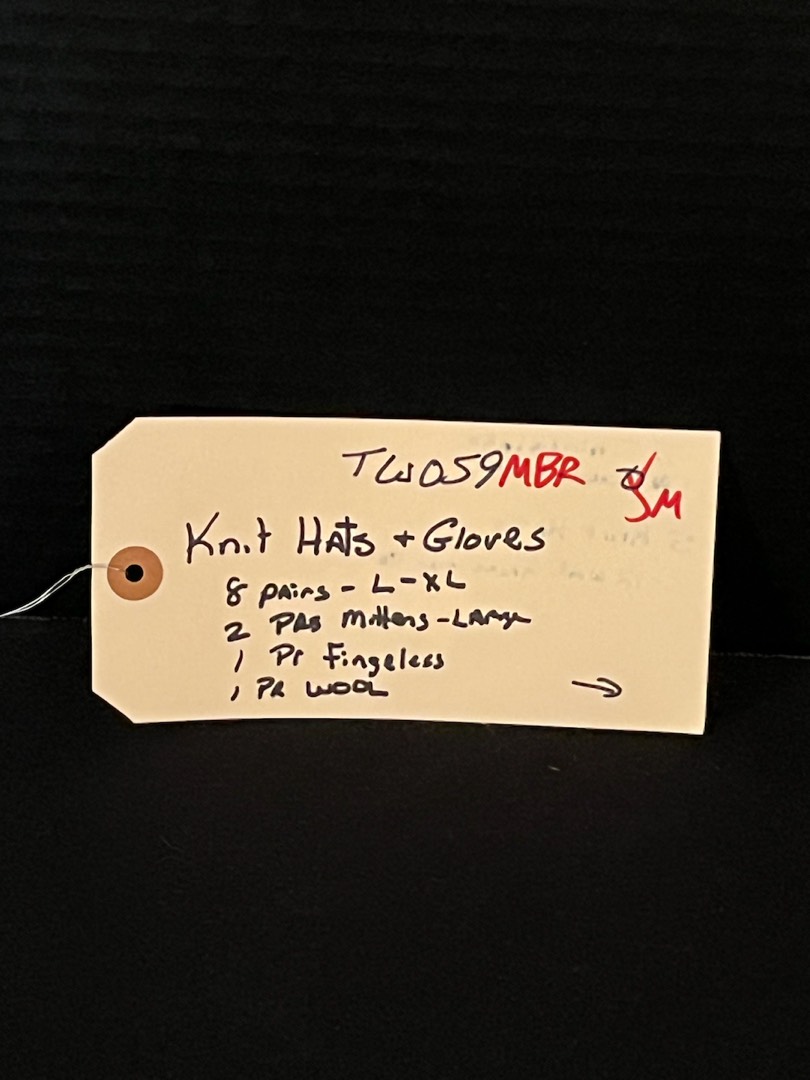 TW059MBR SM
Knit HAts + Gloves
8 pAirs - L-XL
2 PRs Mittens - LArge
1 Pr Fingeless
1 PR WOOL →